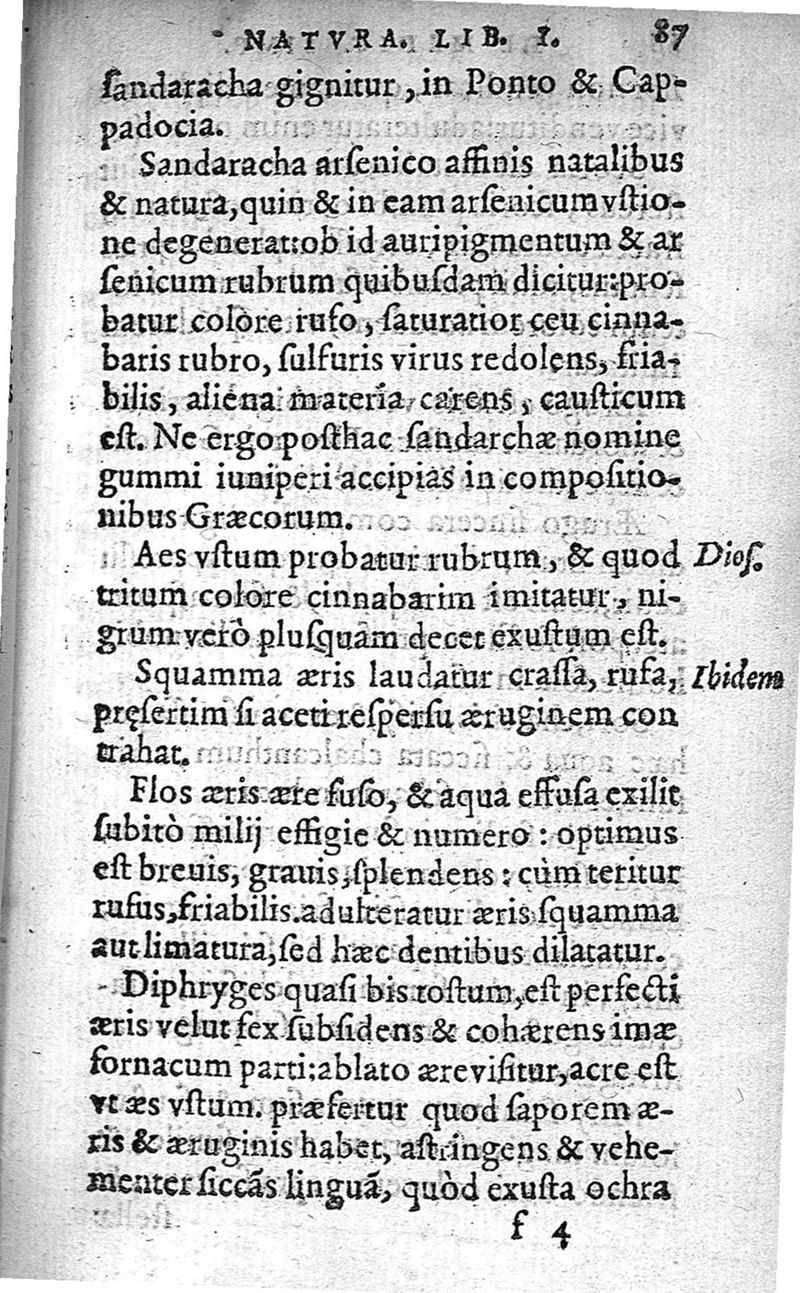 NATVRA. LIB. I. 87
ſandaracha gignitur, in Ponto & Cap-
padocia.
Sandaracha arſenico affinis natalibus
& natura, quin & in eam arſenicum vſtio-
ne degenerat: ob id auripigmentum & ar
ſenicum rubrum quibuſdam dicitur: pro-
batur colore rufo, ſaturatior ceu cinna-
baris rubro, ſulfuris virus redolens, fria-
bilis, aliena materia carens, cauſticum
eſt. Ne ergo poſthac ſandarchæ nomine
gummi iuniperi accipias in compoſitio-
nibus Græcorum.
Aes vſtum probatur rubrum, & quod Dioſ.
tritum colore cinnabarim imitatur, ni-
grum verò pluſquam decet exuſtum eſt.
Squamma æris laudatur craſſa, rufa, Ibidem
pręſertim ſi aceti reſperſu æruginem con
trahat.
Flos æris ære fuſo, & aqua effuſa exilit
ſubitò milij effigie & numero: optimus
eſt breuis, grauis, ſplendens: cùm teritur
rufus, friabilis. adulteratur æris ſquamma
aut limatura, ſed hæc dentibus dilatatur.
Diphryges quaſi bis toſtum, eſt perfecti
æris velut fex ſubſidens & cohærens imæ
fornacum parti: ablato ære viſitur, acre eſt
vt æs vſtum. præfertur quod ſaporem æ-
ris & æruginis habet, aſtringens & vehe-
menter ſiccãs linguã, quòd exuſta ochra
f 4